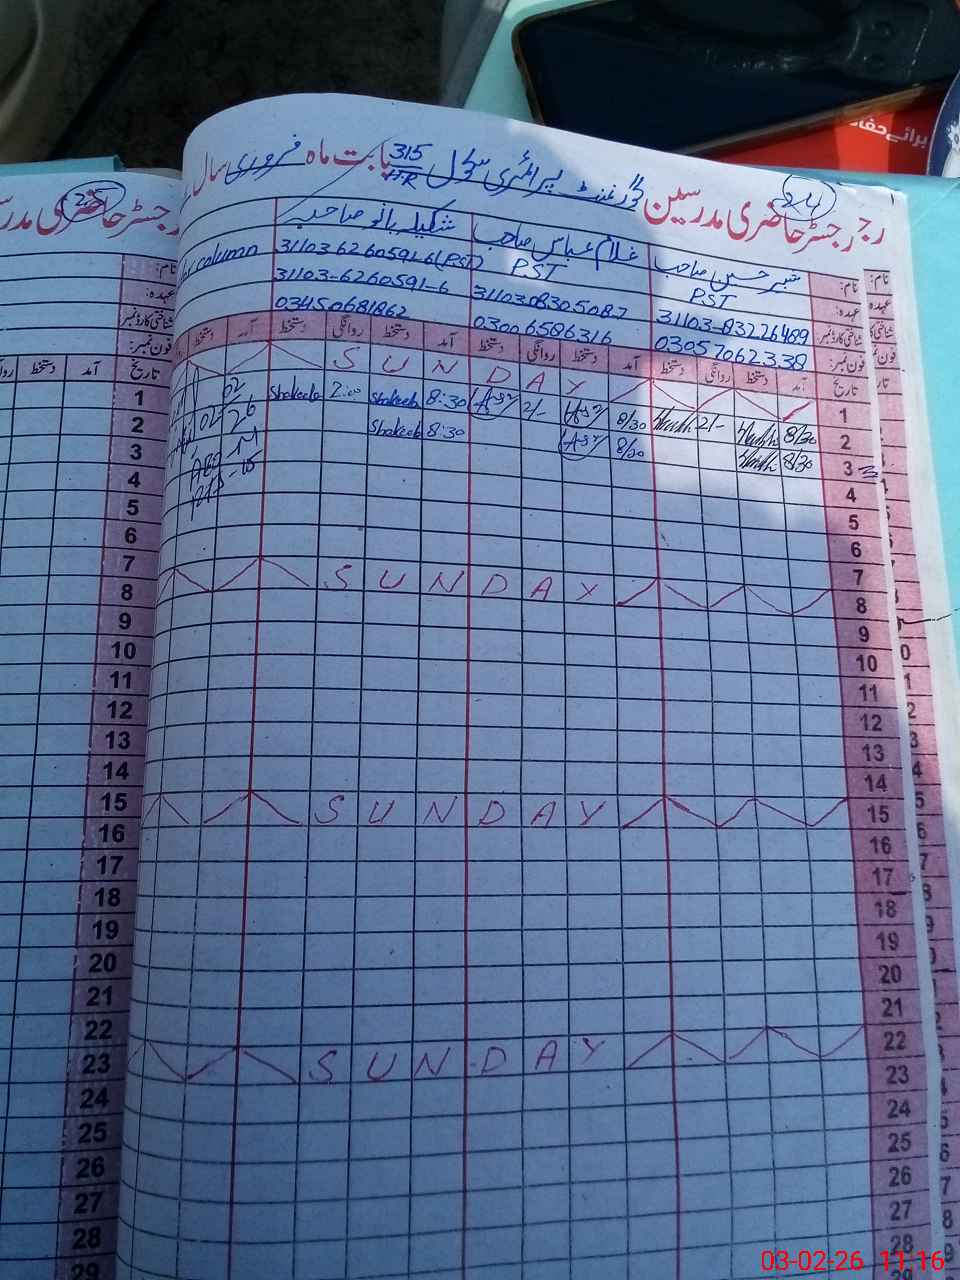 برائے حفا
24
رجسٹر حاضری مدرسین گورنمنٹ پرائمری سکول 315/HR بابت ماہ فروری سال
نام: شبیر حسین صاحب غلام عباس صاحب شکیلہ بانو صاحبہ
عہدہ: PST PST 31103-6260591-6(PST)
شناختی کارڈ نمبر: 31103-8322648-9 31103-0830508-7 31103-6260591-6
فون نمبر: 03057062338 03006586316 03450681862
column
تاریخ آمد دستخط روانگی دستخط آمد دستخط روانگی دستخط آمد دستخط روانگی دستخط
1 SUNDAY
2 8/30 2/- 8/30 2/- 8:30 Shakeela 2:00 Shakeela
3 8/30 8/30 8:30 Shakeela
4
5
6
7
8 SUNDAY
9
10
11
12
13
14
15 SUNDAY
16
17
18
19
20
21
22 SUNDAY
23
24
25
26
27
28
29
25
رجسٹر حاضری مدر
نام:
عہدہ:
شناختی کارڈ نمبر:
فون نمبر:
تاریخ آمد دستخط
1
2
3
4
5
6
7
8
9
10
11
12
13
14
15
16
17
18
19
20
21
22
23
24
25
26
27
28
29
03-02-26 11:16